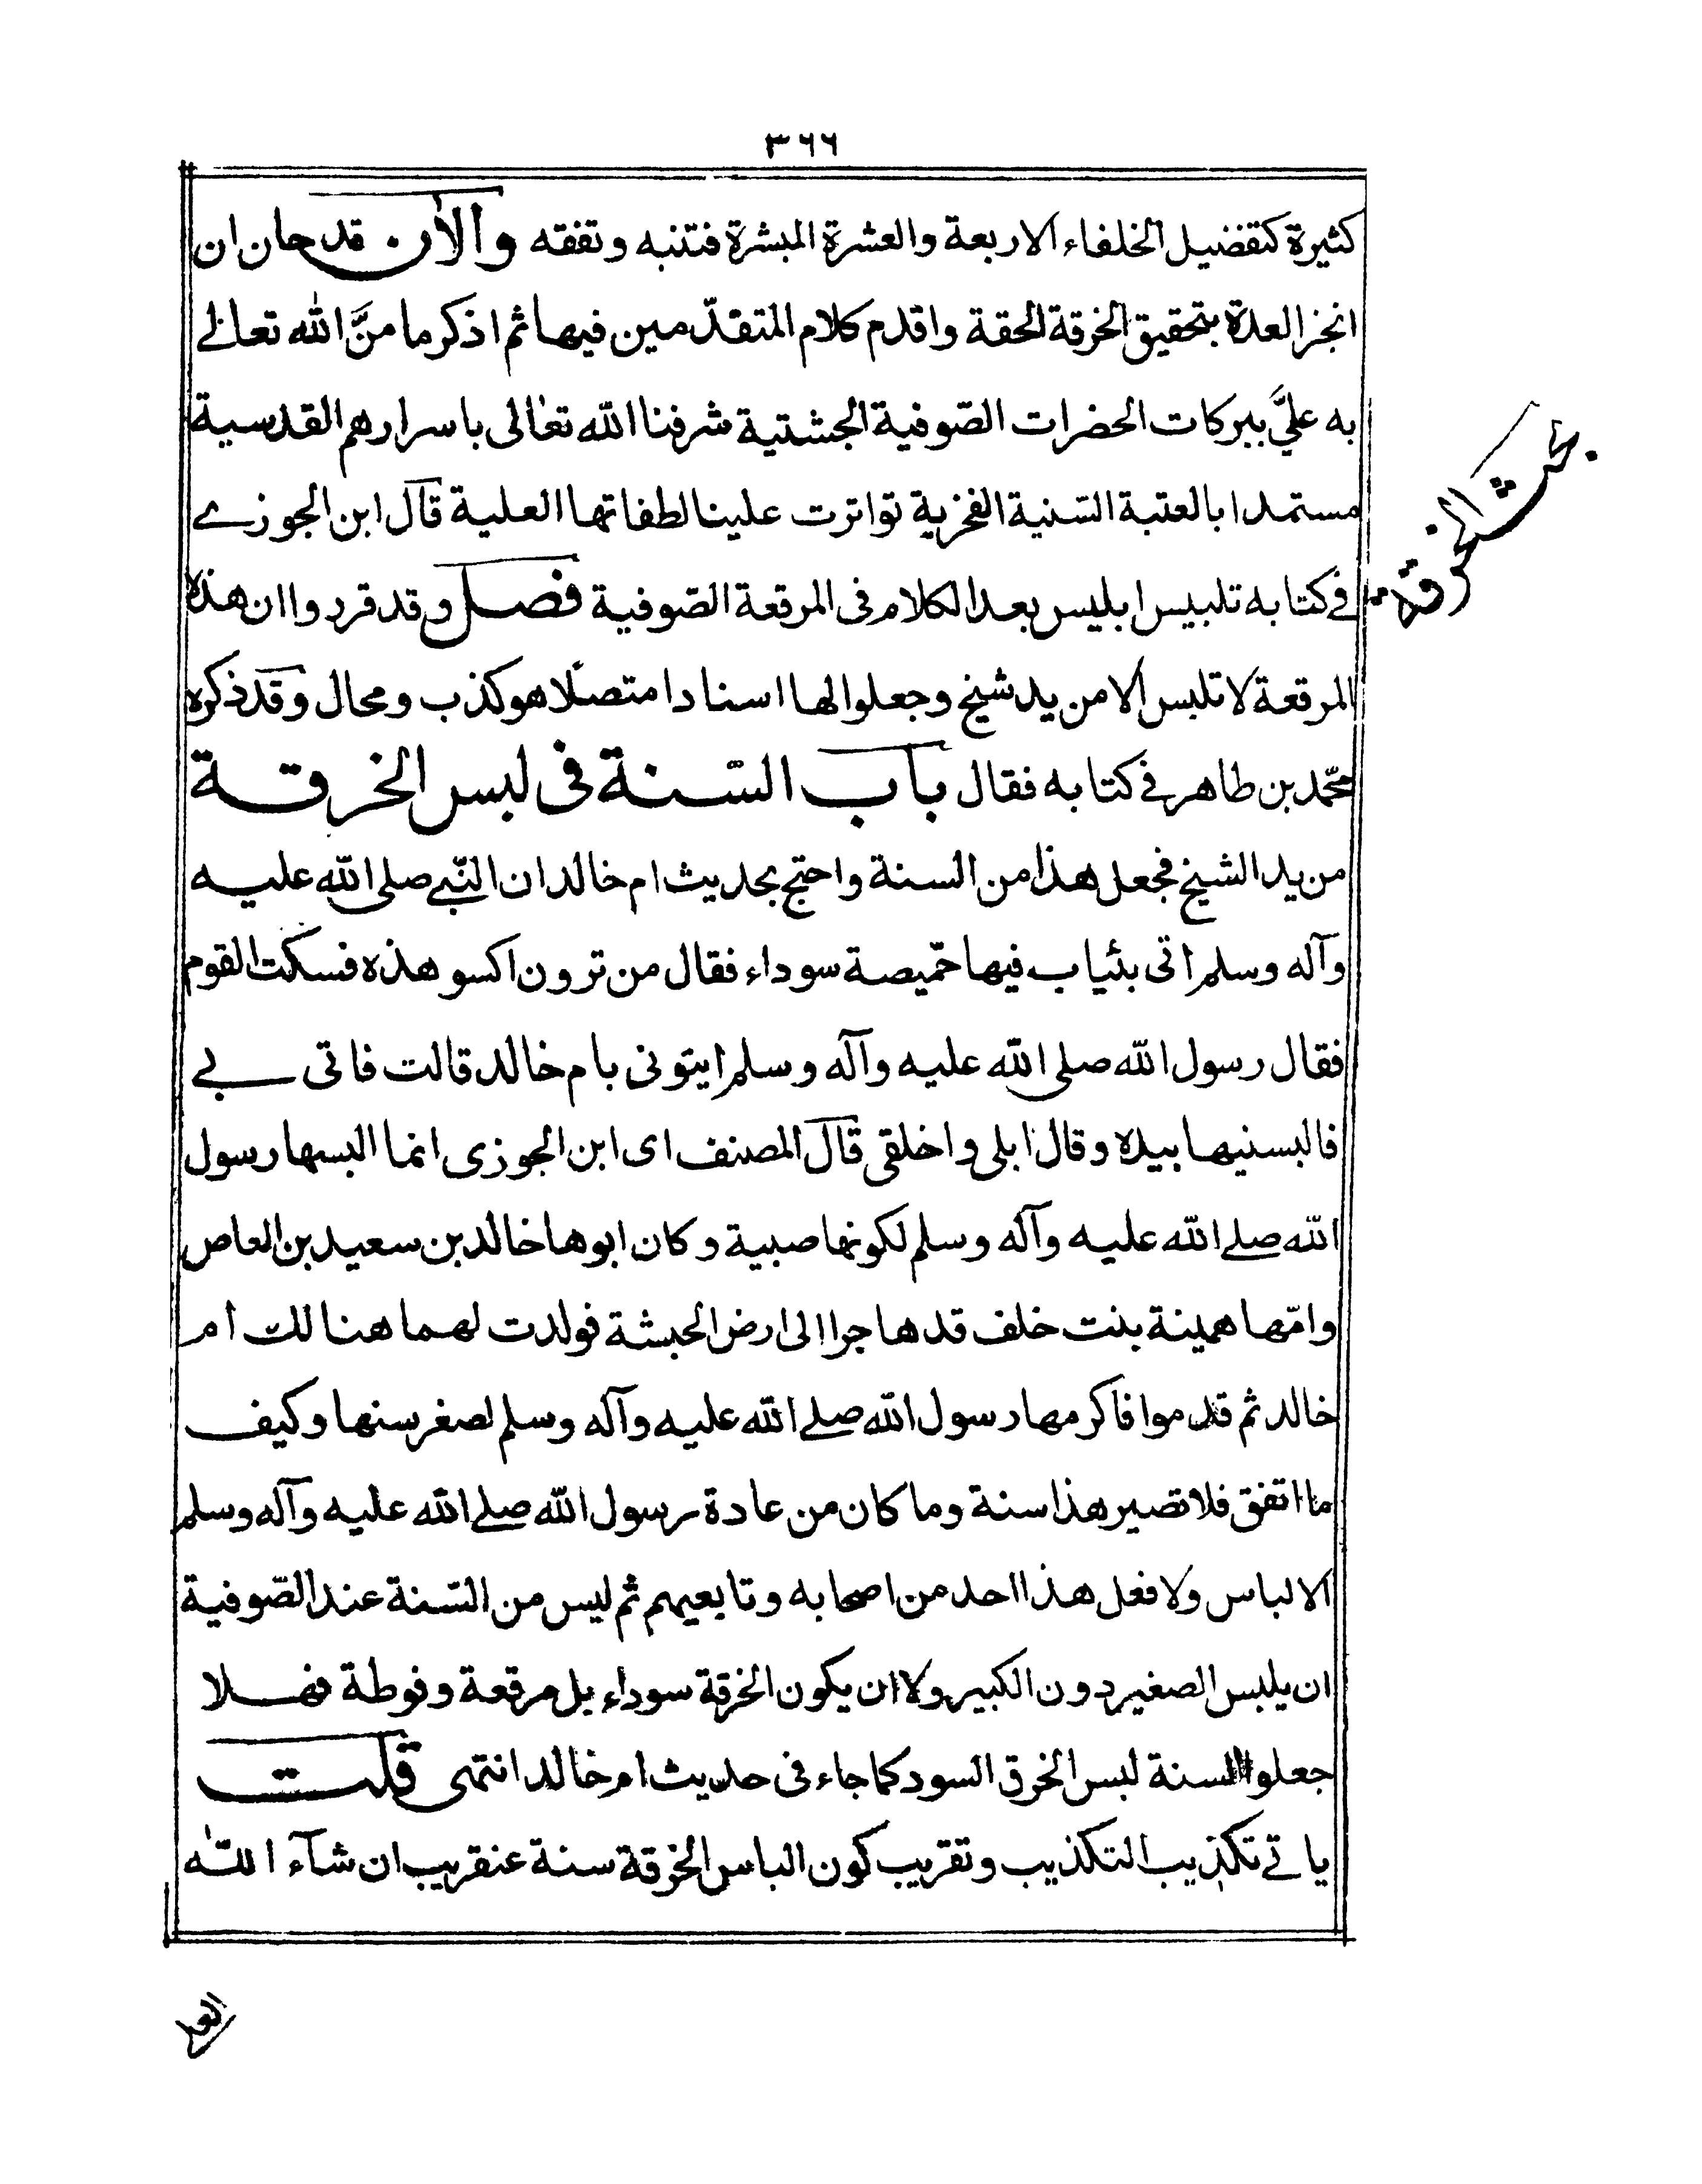 ٣٦٦
كثيرة كتفضيل الخلفاء الاربعة والعشرة المبشرة فتنبه وتفقه والآن قد حان ان
انجز العدة بتحقيق الخرقة الحقة واقدم كلام المتقدّمين فيها ثم اذكر ما منَّ الله تعالے
به عليَّ ببركات الحضرات الصّوفية الجشتية شرفنا الله تعالى باسرارهم القدسية
مستمدا بالعتبة السّنية الفخرية تواترت علينا لطفاتها العلية قال ابن الجوزے
فے كتابه تلبيس ابليس بعد الكلام فى المرقعة الصّوفية فصل وقد قرروا ان هذه
المرقعة لا تلبس الا من يد شيخ وجعلوا لها اسنادا متصلًا هو كذب ومحال وقد ذكره
محمّد بن طاهر فے كتابه فقال باب السّنة فى لبس الخرقة
من يد الشيخ فجعل هذا من السنة واحتج بحديث ام خالد ان النّبے صلى الله عليه
وآله وسلم اتى بثياب فيها خمّيصة سوداء فقال من ترون اكسو هذه فسكت القوم
فقال رسول الله صلى الله عليه وآله وسلم ايتونى بام خالد قالت فاتى بے
فالبسنيها بيده وقال ابلى واخلقى قال المصنف اى ابن الجوزى انما البسها رسول
الله صلے الله عليه وآله وسلم لكونها صبية وكان ابوها خالد بن سعيد بن العاص
وامّها همينة بنت خلف قد هاجرا الى ارض الحبشة فولدت لهما هنالك ام
خالد ثم قدموا فاكرمها رسول الله صلے الله عليه وآله وسلم لصغر سنها وكيف
ما اتفق فلا تصير هذا سنة وما كان من عادة رسول الله صلے الله عليه وآله وسلم
الالباس ولا فعل هذا احد من اصحابه وتابعيهم ثم ليس من السّنة عند الصّوفية
ان يلبس الصغير دون الكبير ولا ان يكون الخرقة سوداء بل مرقعة وفوطة فهلا
جعلوا السنة لبس الخرق السود كما جاء فى حديث ام خالد انتهى قلت
ياتے تكذيب التكذيب وتقريب كون الباس الخرقة سنة عنقريب ان شآء الله
بحث الخرقة